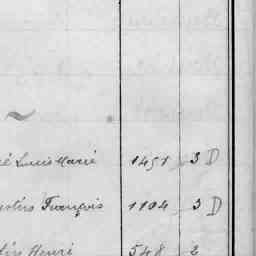 é Louis Marie 1451 3 D
François 1104 3 D
Henri 548 2